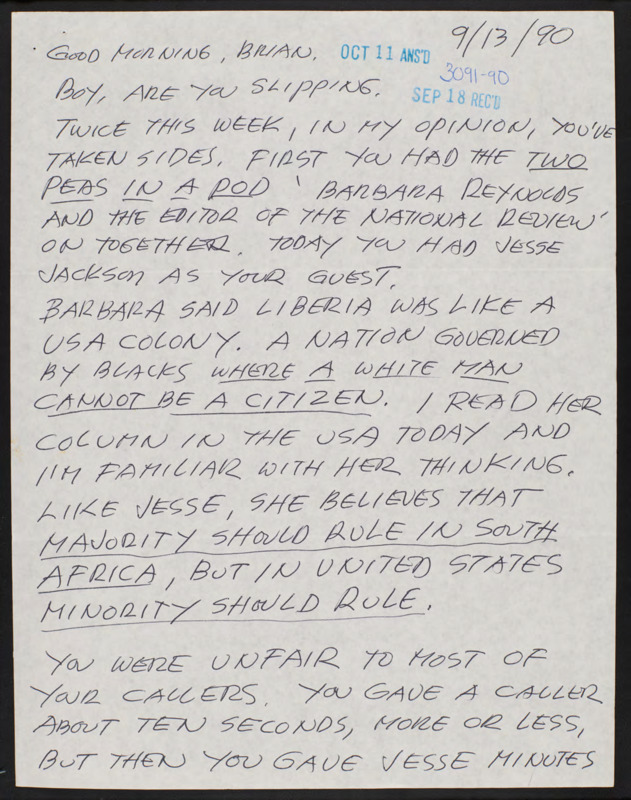 9/13/90
GOOD MORNING, BRIAN. OCT 11 ANS'D
3091-90
BOY, ARE YOU SLIPPING. SEP 18 REC'D
TWICE THIS WEEK, IN MY OPINION, YOU'VE
TAKEN SIDES. FIRST YOU HAD THE TWO
PEAS IN A POD ' BARBARA REYNOLDS
AND THE EDITOR OF THE NATIONAL REVIEW'
ON TOGETHER. TODAY YOU HAD JESSE
JACKSON AS YOUR GUEST.
BARBARA SAID LIBERIA WAS LIKE A
USA COLONY. A NATION GOVERNED
BY BLACKS WHERE A WHITE MAN
CANNOT BE A CITIZEN. I READ HER
COLUMN IN THE USA TODAY AND
I'M FAMILIAR WITH HER THINKING.
LIKE JESSE, SHE BELIEVES THAT
MAJORITY SHOULD RULE IN SOUTH
AFRICA, BUT IN UNITED STATES
MINORITY SHOULD RULE.
YOU WERE UNFAIR TO MOST OF
YOUR CALLERS. YOU GAVE A CALLER
ABOUT TEN SECONDS, MORE OR LESS,
BUT THEN YOU GAVE JESSE MINUTES